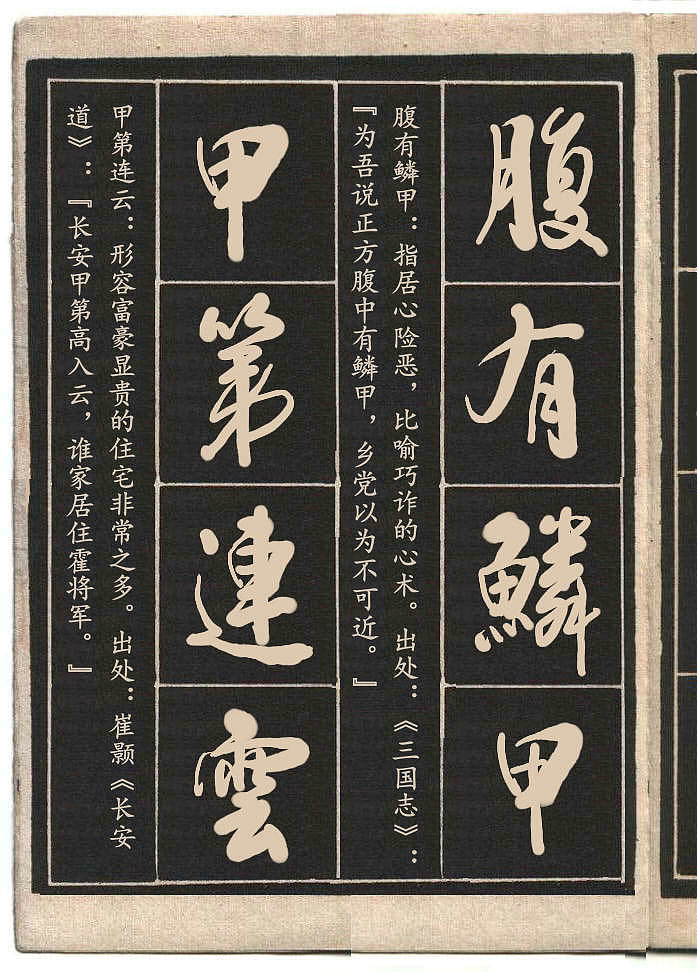 腹有鱗甲
腹有鳞甲：指居心险恶，比喻巧诈的心术。出处：《三国志》：
『为吾说正方腹中有鳞甲，乡党以为不可近。』
甲第連雲
甲第连云：形容富豪显贵的住宅非常之多。出处：崔颢《长安
道》：『长安甲第高入云，谁家居住霍将军。』